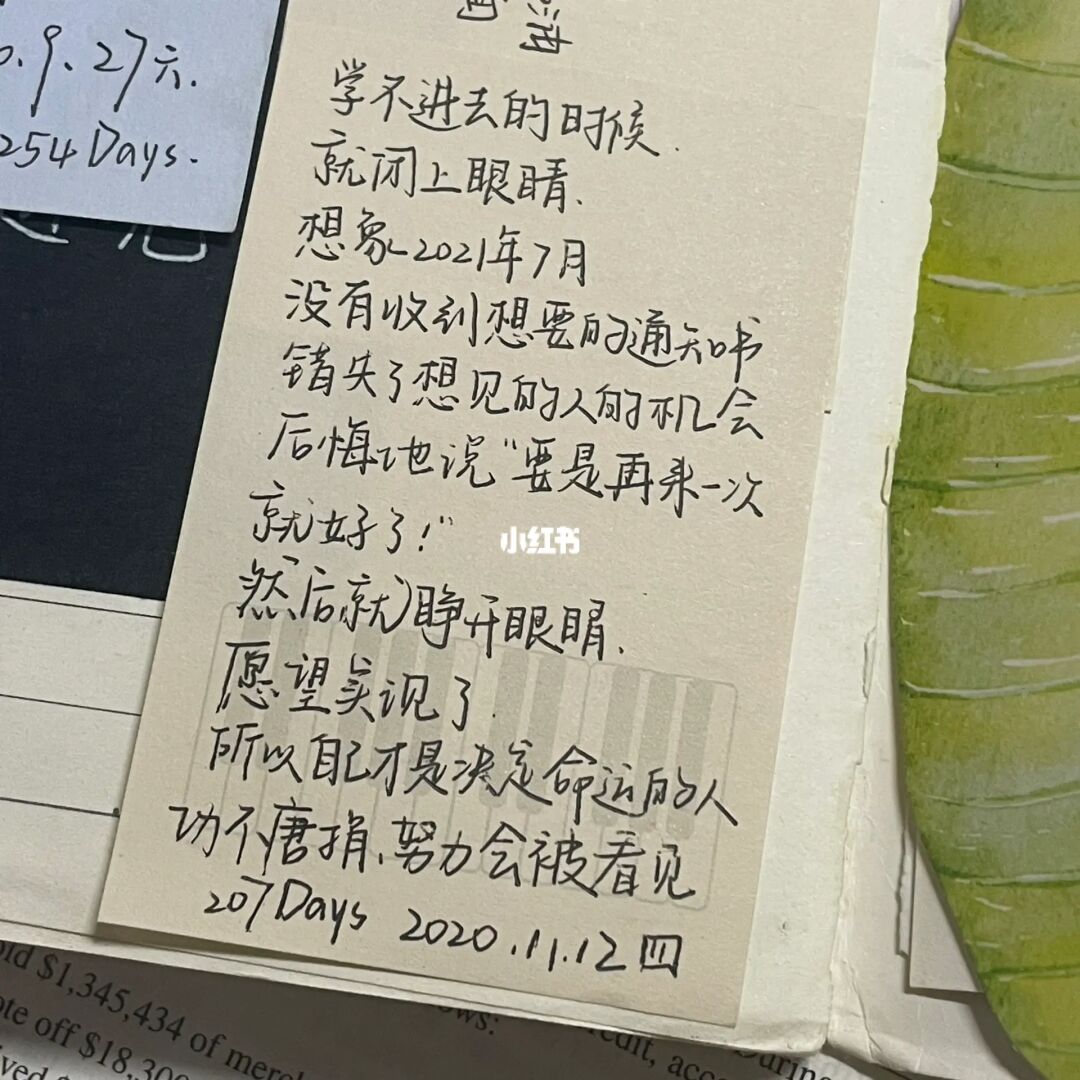 9.27六.
254 Days.
学不进去的时候.
就闭上眼睛、
想象2021年7月
没有收到想要的通知书
错失了想见的人的机会
后悔地说“要是再来一次
就好了！”
然后就睁开眼睛、
愿望实现了.
所以自己才是决定命运的人
功不唐捐、努力会被看见
207Days 2020.11.12 四
小红书
$1,345,434 of
off $18,30